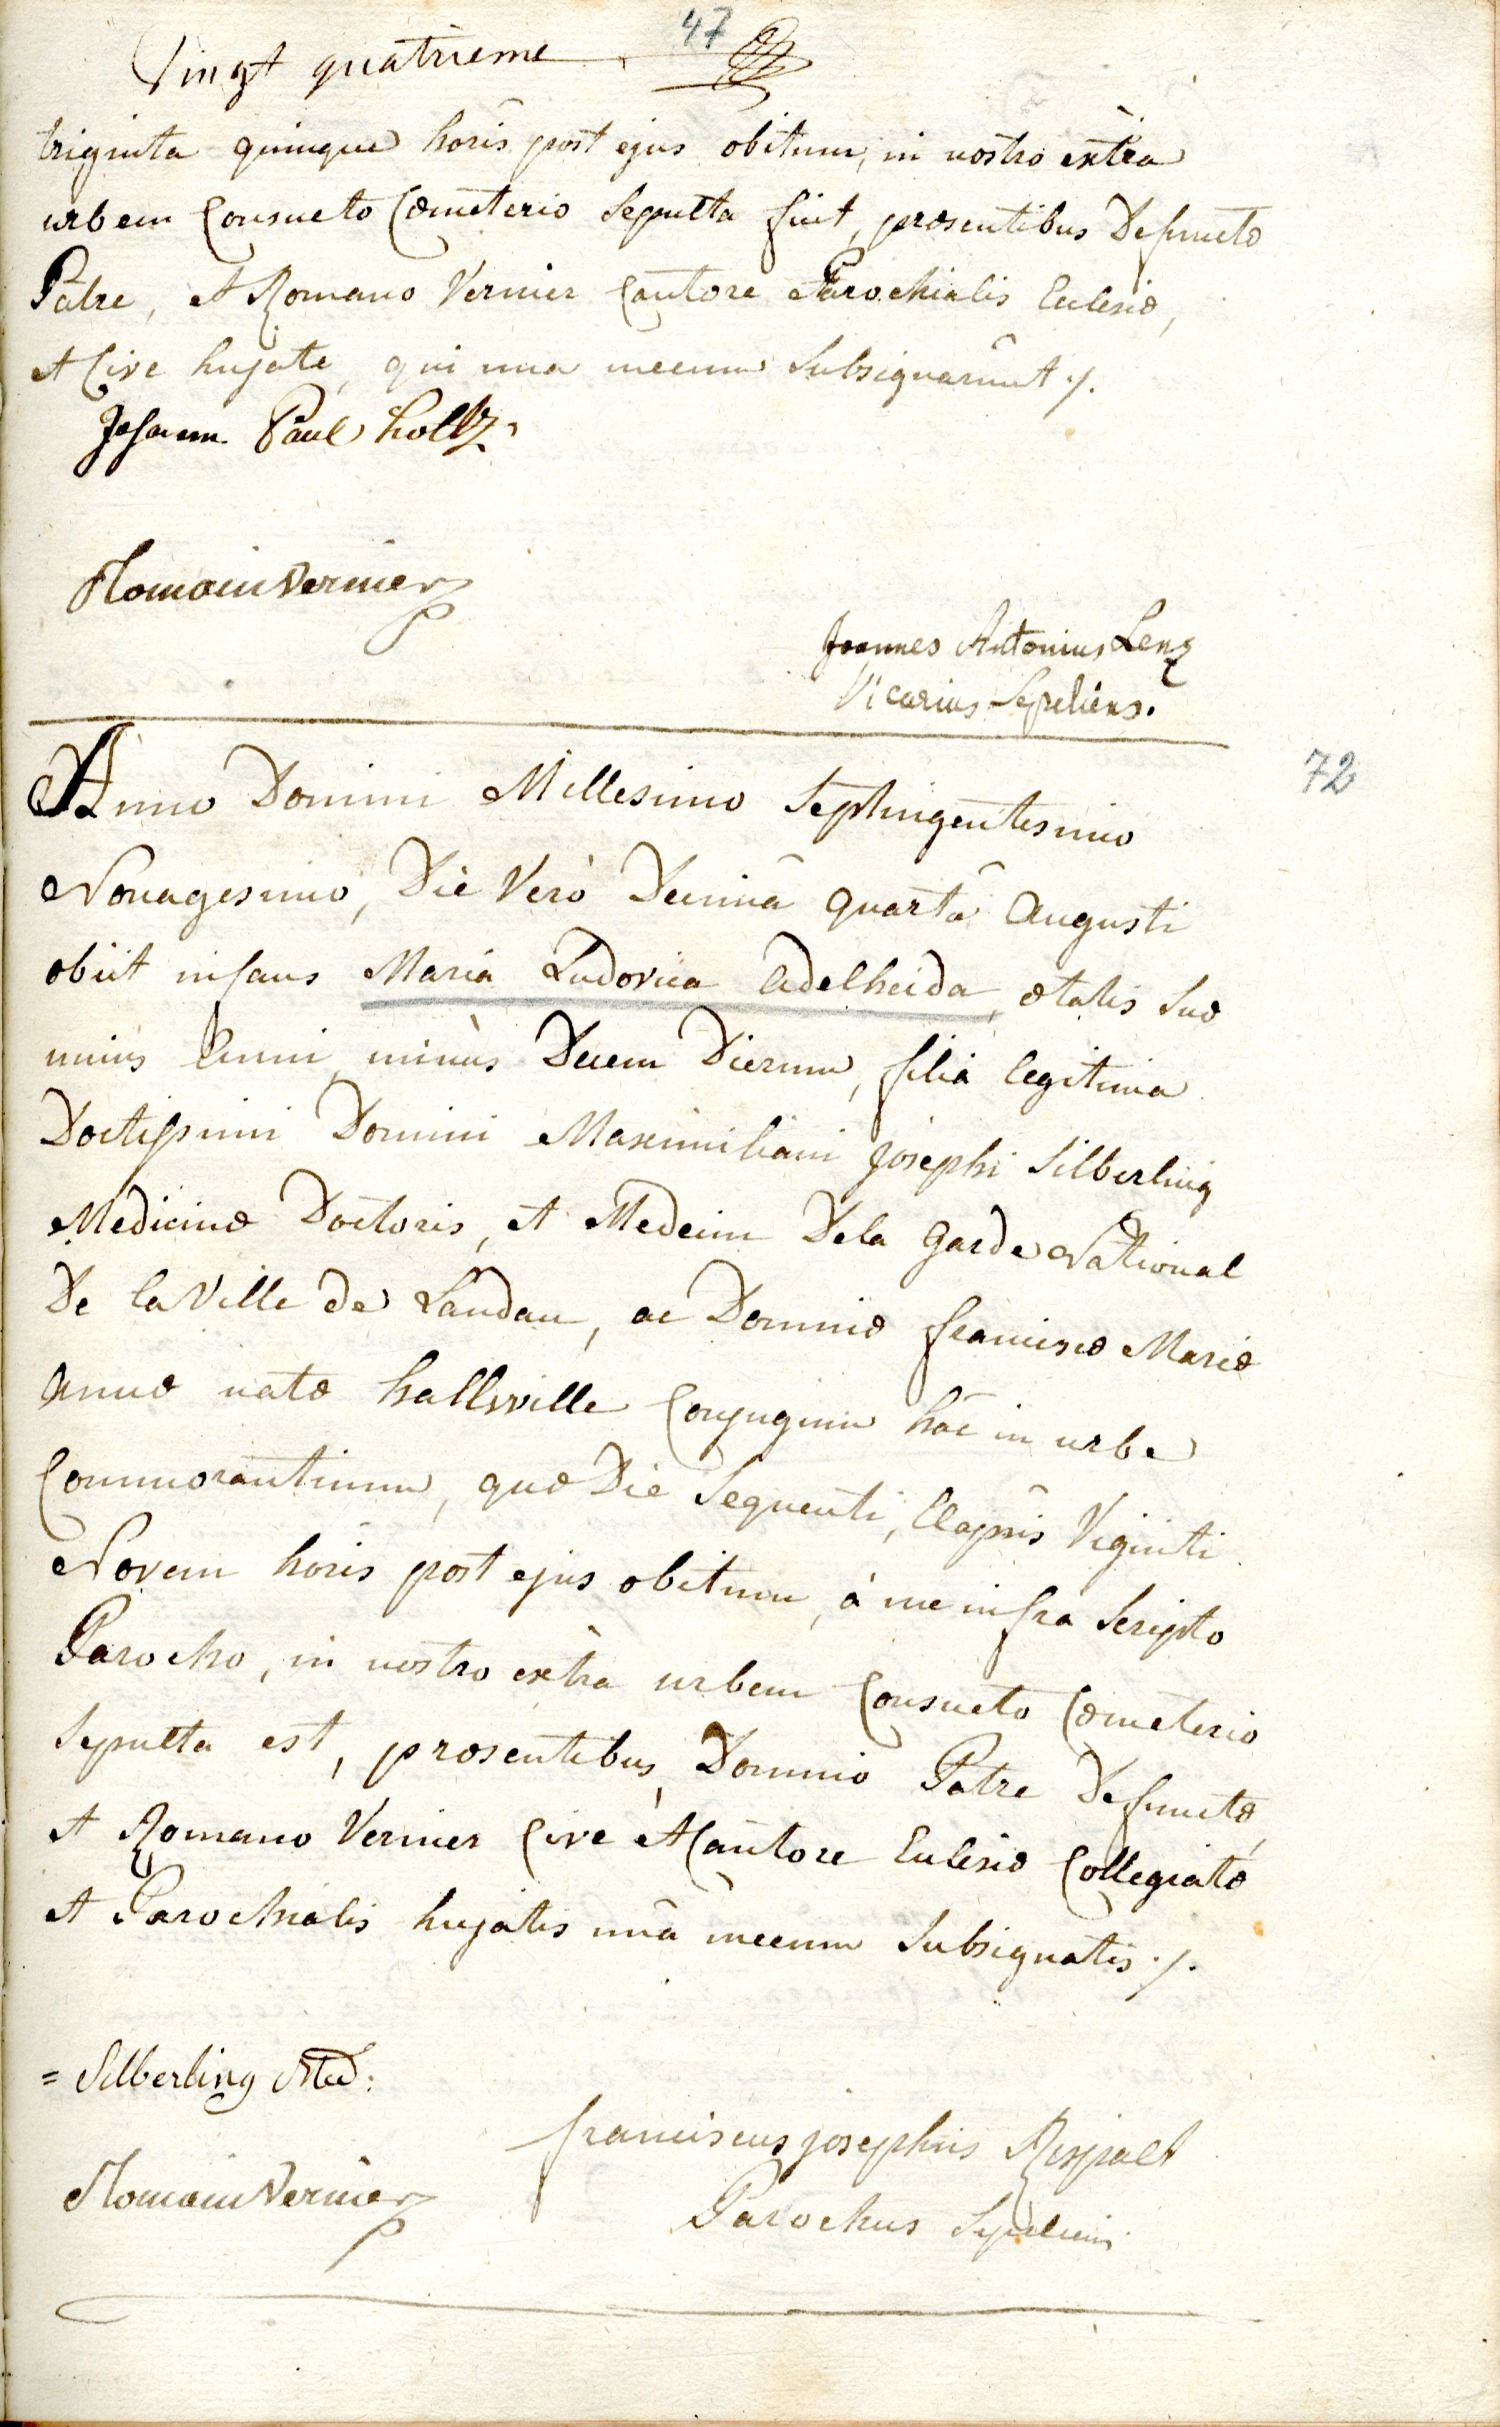 47
Vingt quatrieme
triginta quinque horis post ejus obitum, in nostro extra
urbem Consueto Cœmeterio Sepulta fuit, præsentibus Defunctæ
Patre, et Romano Vernier Cantore Parochialis Ecclesiæ,
et Cive hujate, qui una mecum Subsignarunt ./.
Johann Paul holtz
Romain Vernier
Joannes Antonius Lenz
Vicarius Sepeliens.
72
Anno Domini Millesimo Septingentesimo
Nonagesimo, Die Verò Decimâ quartâ Augusti
obiit infans Maria Ludovica Adelheida, ætatis suæ
unius Anni minùs Decem Dierum, filia legitima
Doctissimi Domini Maximiliani Josephi Silberling
Medicinæ Doctoris, et Medecin De la Garde National
De la Ville de Landau, ac Dominæ franciscæ Mariæ
Annæ natæ hallwille Conjugum hâc in urbe
Commorantium, quæ Die Sequenti, Elapsis Viginti
Novem horis post ejus obitum, à me infra Scripto
Parocho, in nostro extra urbem Consueto Cœmeterio
Sepulta est, præsentibus Domino Patre Defunctæ,
et Romano Vernier Cive et Cantore Ecclesiæ Collegiatæ
et Parochialis hujatis unâ mecum Subsignatis ./.
= Silberling Med:
Romain Vernier
franciscus josephus Respalt
Parochus Sepeliens